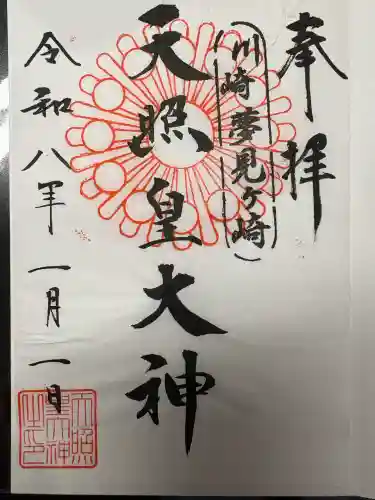 奉拝
(川崎夢見ヶ崎)
天照皇大神
令和八年一月一日